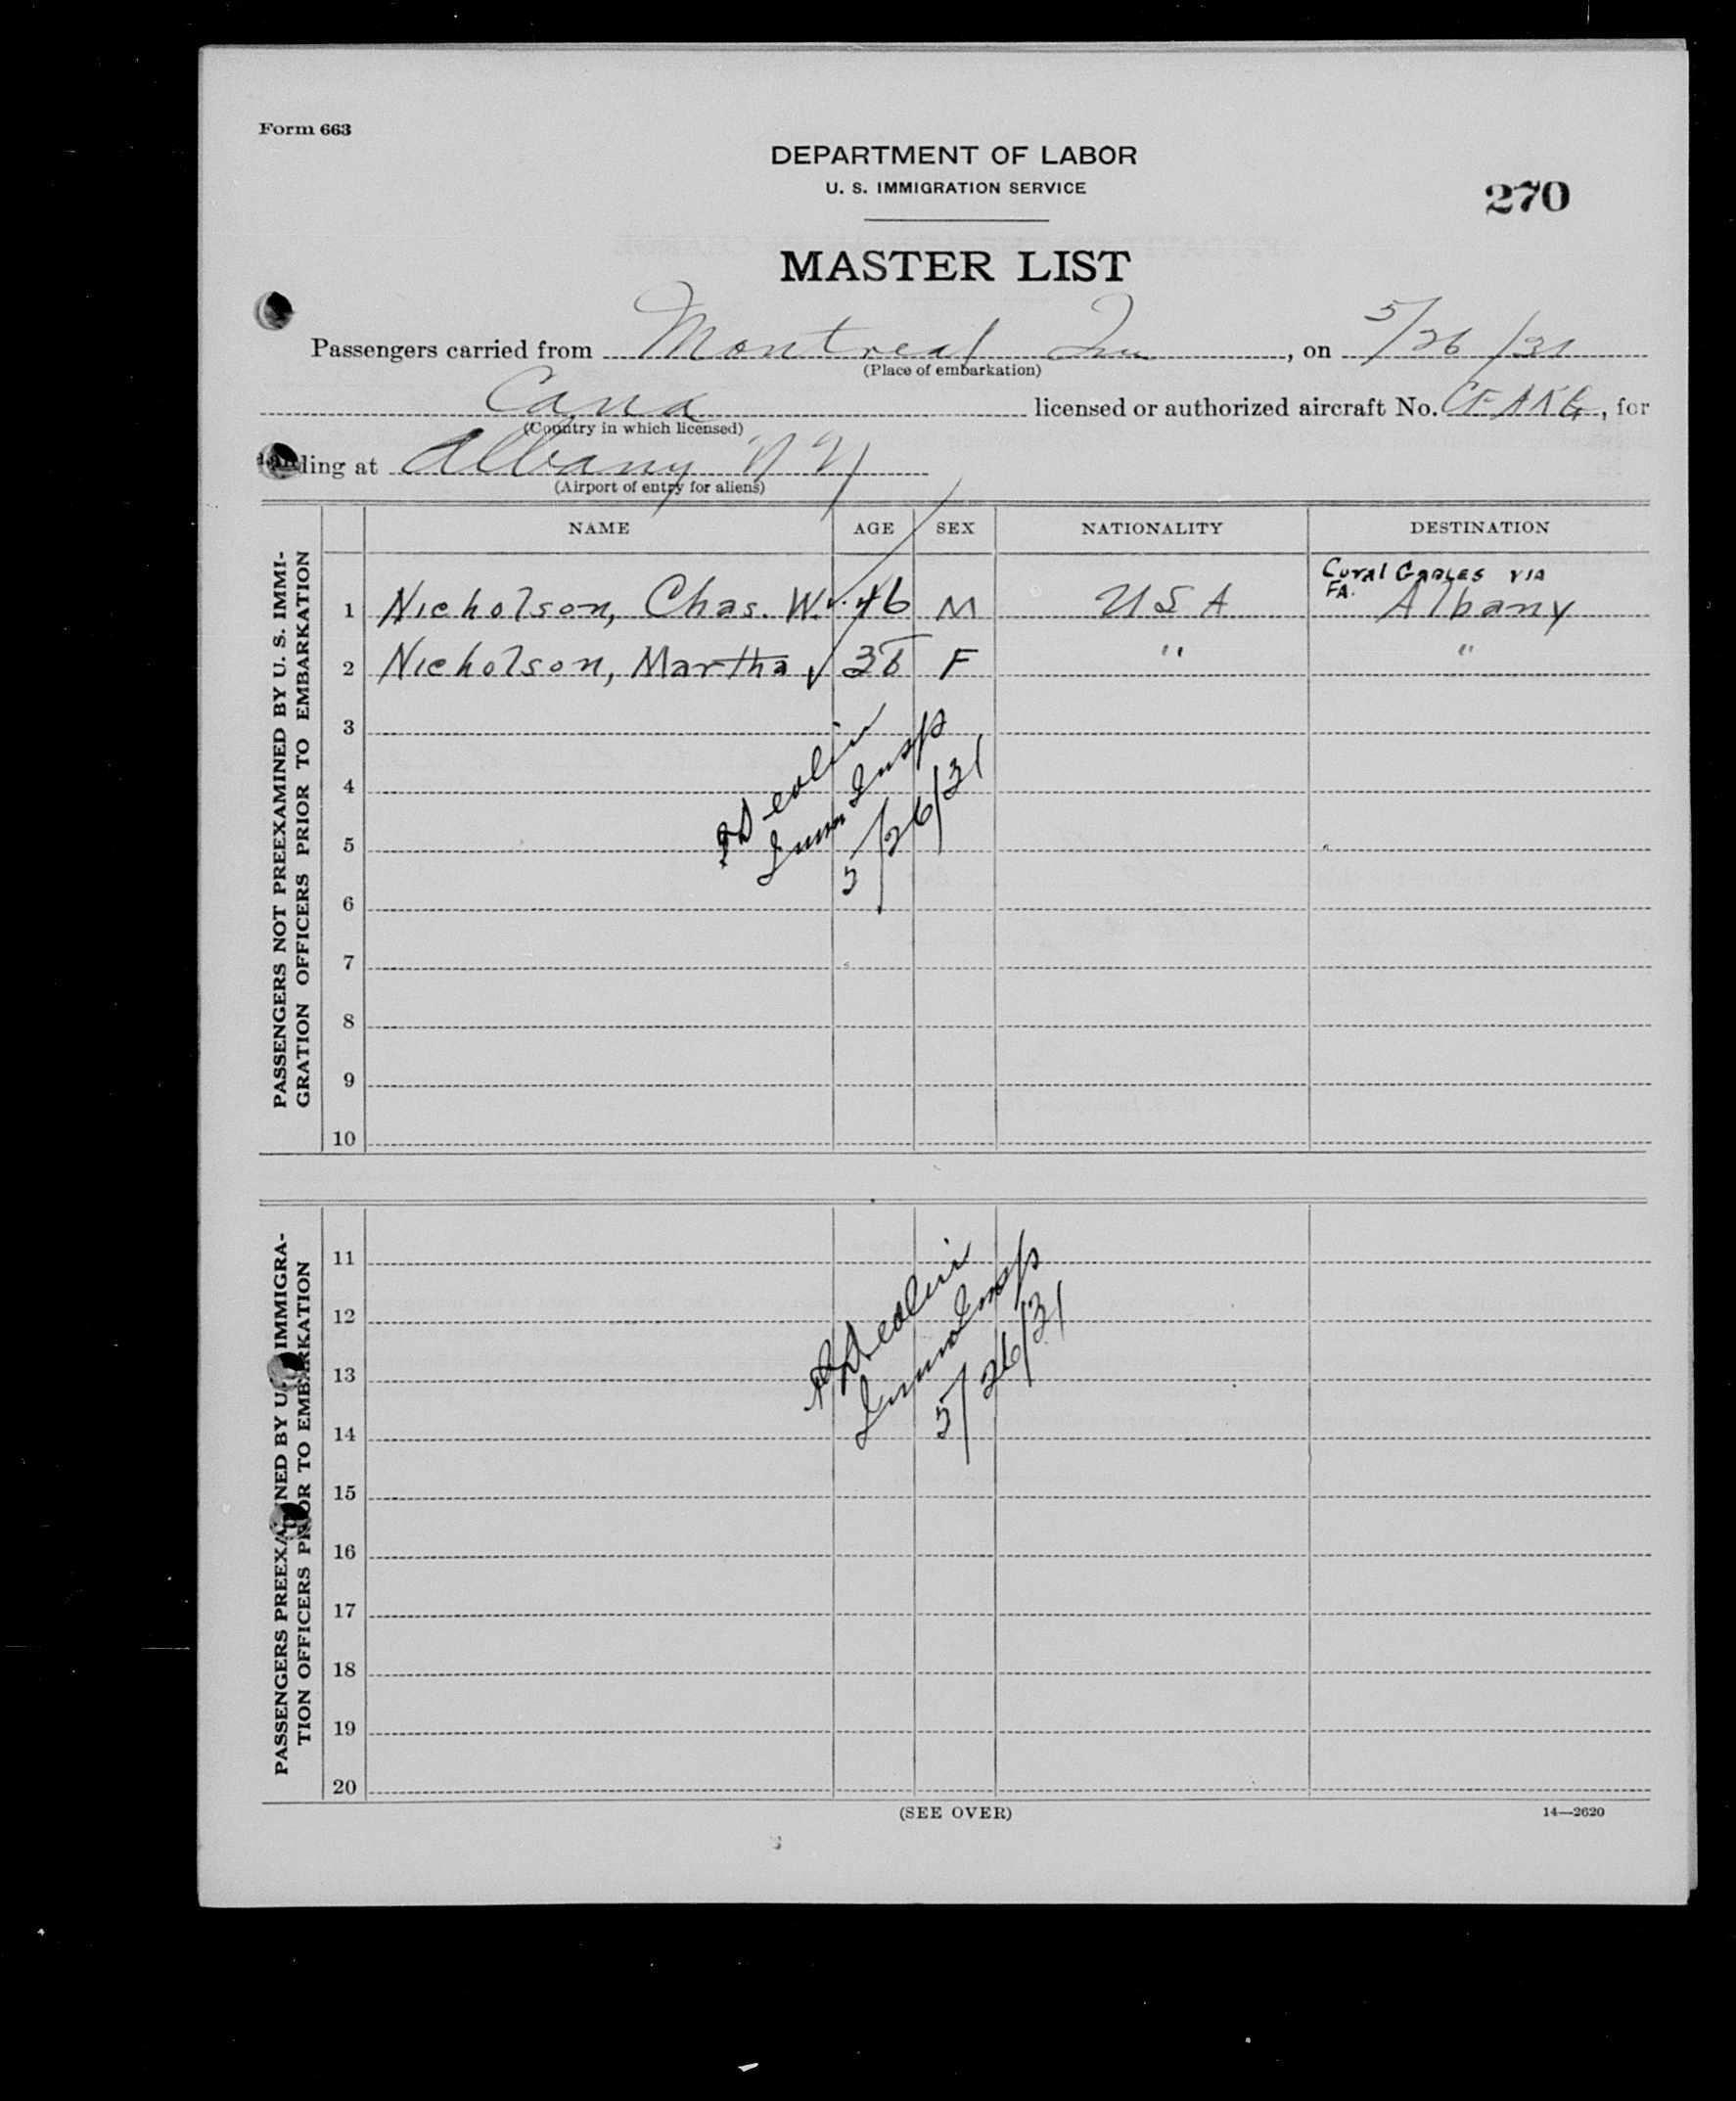 Form 663
DEPARTMENT OF LABOR
U. S. IMMIGRATION SERVICE
270
MASTER LIST
Passengers carried from Montreal Qu, on 5/26/31
(Place of embarkation)
Cana licensed or authorized aircraft No. CFAKG, for
(Country in which licensed)
landing at Albany NY
(Airport of entry for aliens)
NAME AGE SEX NATIONALITY DESTINATION
PASSENGERS NOT PREEXAMINED BY U. S. IMMI-
GRATION OFFICERS PRIOR TO EMBARKATION
Coral Gables via
1 Nicholson, Chas. W. 46 M USA FA. Albany
2 Nicholson, Martha F " "
3
4
5
6
7
8
9
10
Imm Insp
5/26/31
PASSENGERS PREEXAMINED BY U. S. IMMIGRA-
TION OFFICERS PRIOR TO EMBARKATION
11
12
13
14
15
16
17
18
19
20
Imm Insp
5/26/31
(SEE OVER)
14—2620